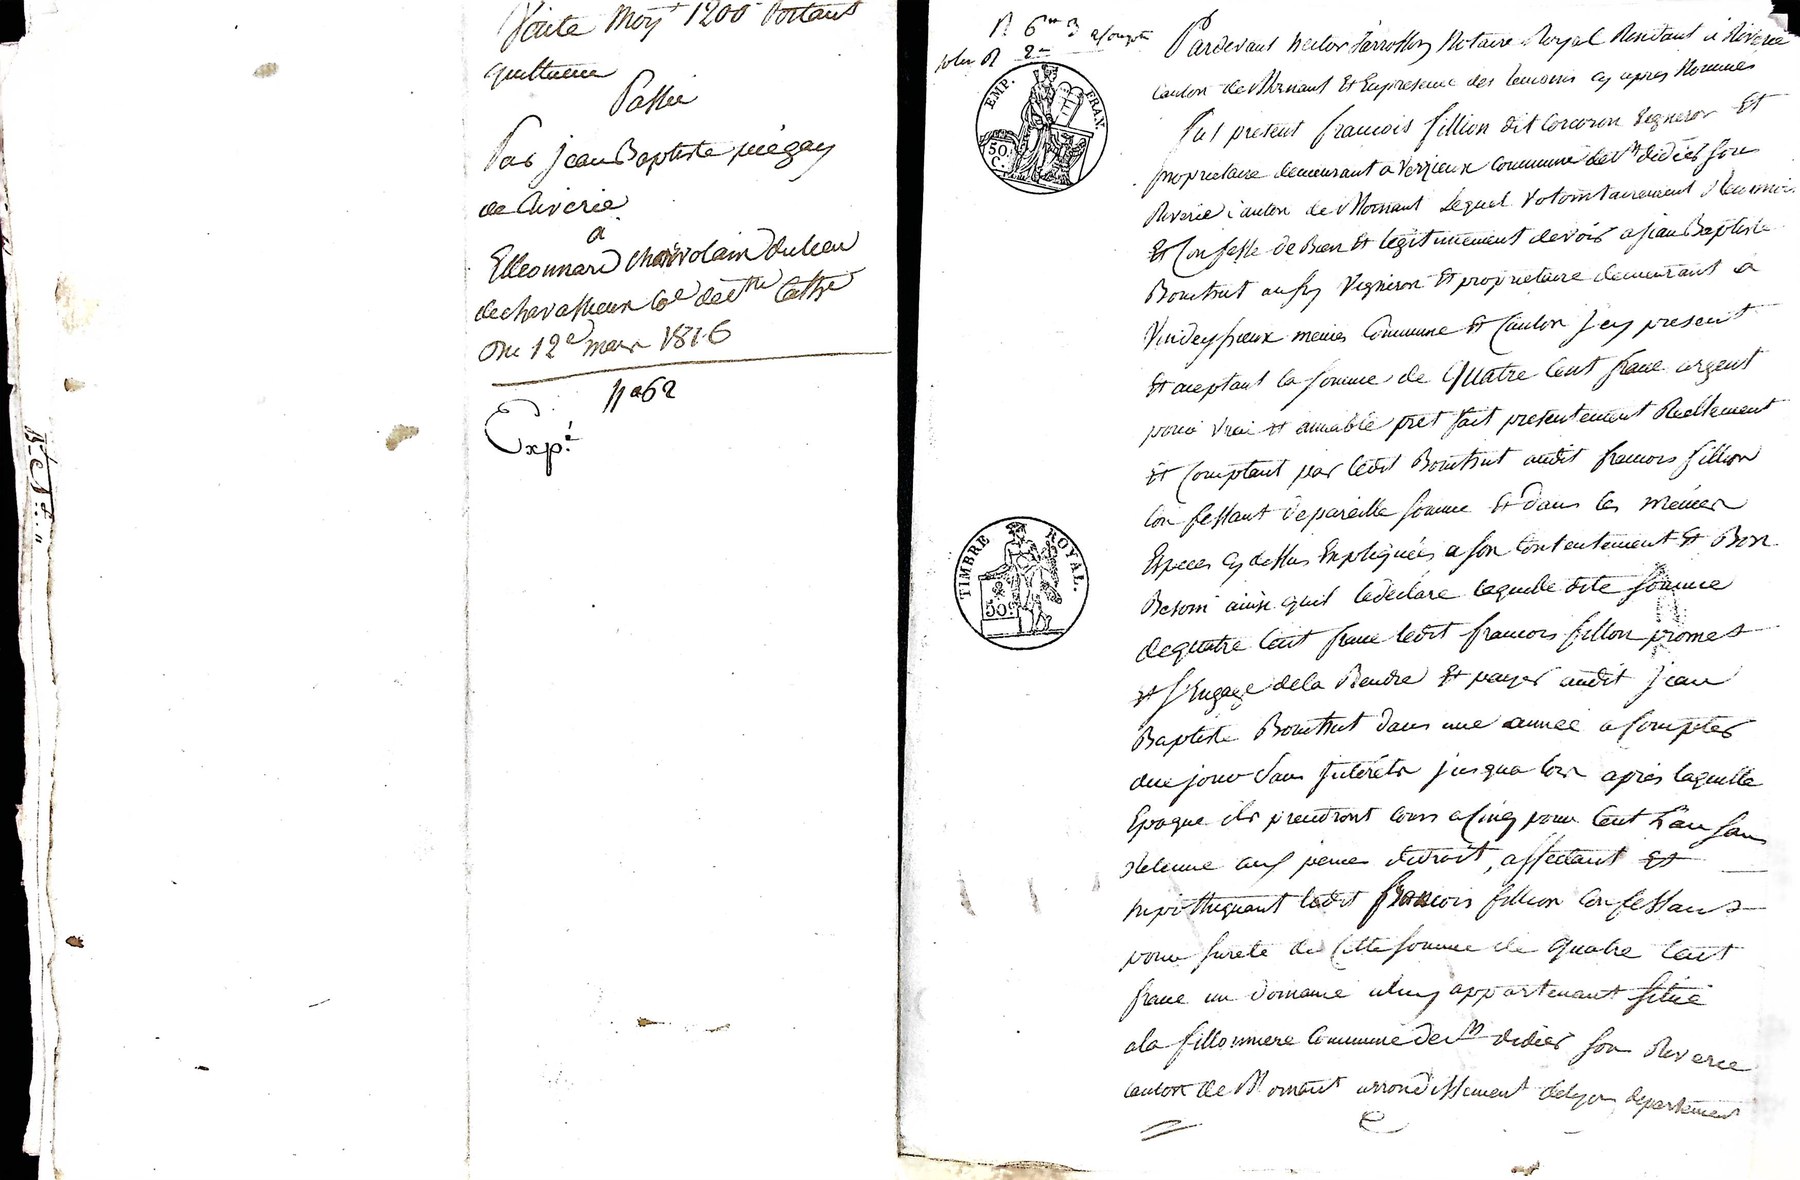 Vente Moyt 1200 Portant
quittance
Passée
Par jean Baptiste piegay
de Riverie
a
Elleonnard charvolain dulieu
de chavassieux Coe de Ste Cathe
Du 12e mars 1816
No 62
Expé
R. 6 3
2
EMP. FRAN.
50 C.
Pardevant hector Notaire Royal Residant a Riverie
canton de Mornant Et En presence des temoins cy apres Nommes
fut present francois fillion dit Corcoron Vigneron Et
proprietaire demeurant a Verzieux commune de St didier Sou
Riverie canton de Mornant Lequel Volontairement Reconnoi
Et Confesse de Bien Et legitimement devoir a jean Baptiste
Bouchut aussy Vigneron Et proprietaire demeurant a
meme Commune Et Canton Jcy present
Et aceptant la somme de Quatre Cent franc argent
pour Vrai Et amiable pret fait presentement Reellement
Et Comptant par ledit Bouchut audit francois fillion
Confessant de pareille somme Et dans les memes
Especes cy dessus Expliquées a son Contentement Et Bon
Besoin ainsi quil le declare laquelle dite somme
de quatre Cent franc ledit francois fillion promet
Et s'Engage de la Rendre Et payer audit Jean
Baptiste Bouchut dans une année a Compter
du jour Sans Interets jusqua lors apres laquelle
Epoque ils prendront cours a Cinq pour Cent L'an San
Retenue aux peines de droit, affectant Et
hipothequant ledit francois fillion Confessant
pour sureté de Cette somme de quatre Cent
franc un domaine a luy appartenant situé
a la fillonniere Commune de St didier Sou Riverie
canton de Mornant arrondissement de Lyon departement
TIMBRE ROYAL.
50 C